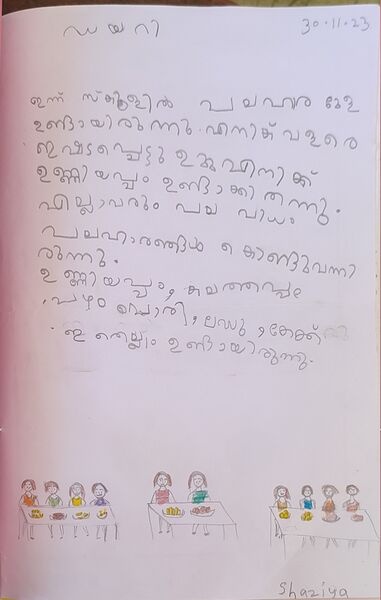 ഡയറി
30.11.23
ഇന്ന് സ്കൂളിൽ പലഹാര മേള
ഉണ്ടായിരുന്നു. എനിക്ക് വളരെ
ഇഷ്ടപ്പെട്ടു ഉമ്മ എനിക്ക്
ഉണ്ണിയപ്പം ഉണ്ടാക്കി തന്നു.
എല്ലാവരും പല വിധം
പലഹാരങ്ങൾ കൊണ്ടുവന്നി
രുന്നു.
ഉണ്ണിയപ്പം, കലത്തപ്പം
പഴം പൊരി, ലഡു, കേക്ക്
ഇതെല്ലാം ഉണ്ടായിരുന്നു.
Shaziya